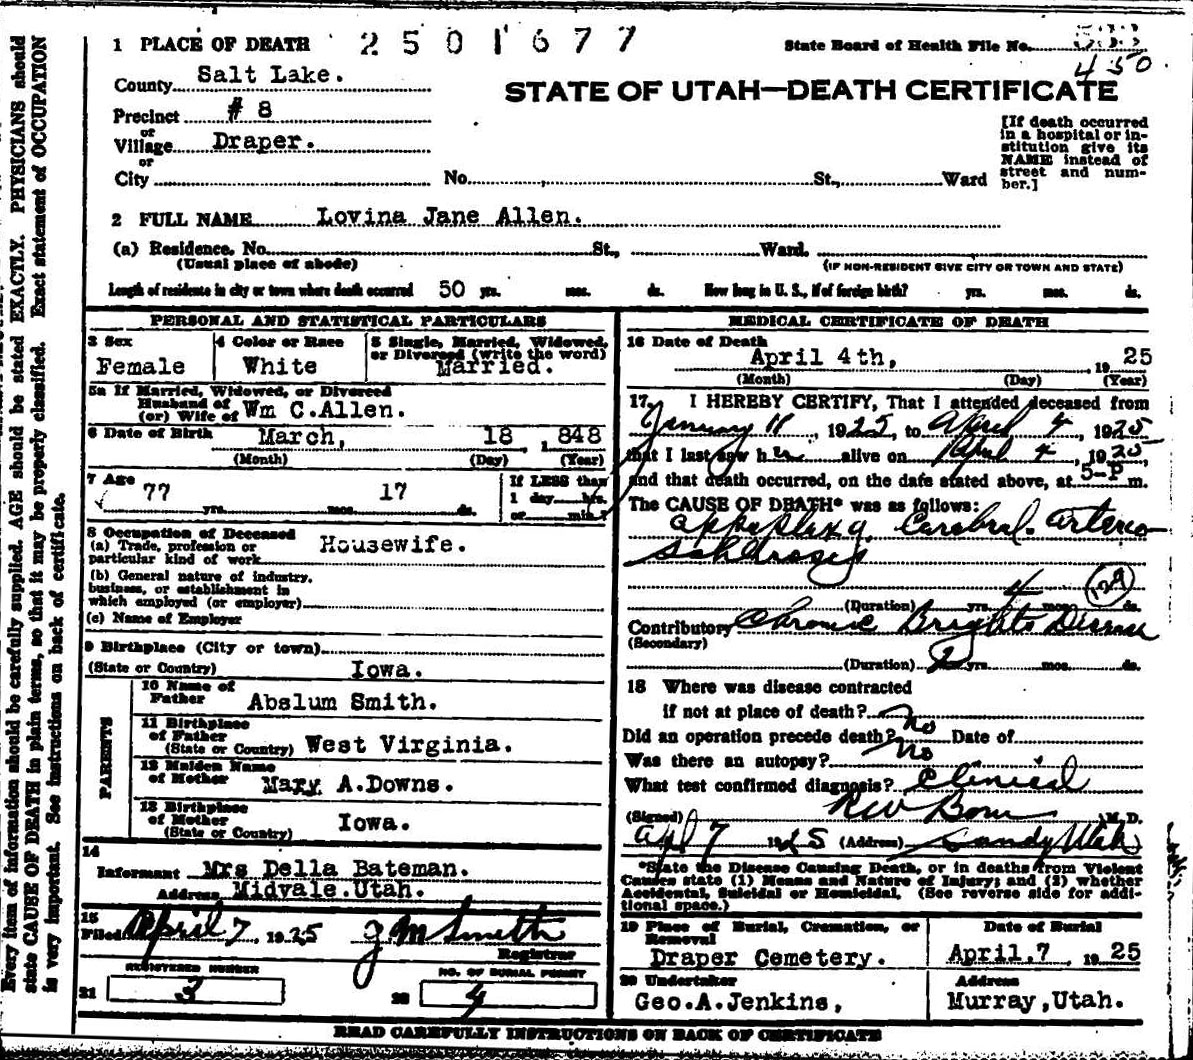 1 PLACE OF DEATH 2501677 State Board of Health File No.
450
County Salt Lake. STATE OF UTAH—DEATH CERTIFICATE
Precinct # 8
or
Village Draper.
or
City No. St., Ward
[If death occurred
in a hospital or in-
stitution give its
NAME instead of
street and num-
ber.]
2 FULL NAME Lovina Jane Allen.
(a) Residence. No. St., Ward.
(Usual place of abode) (IF NON-RESIDENT GIVE CITY OR TOWN AND STATE)
Length of residents in city or town where death occurred 50 yrs. mos. ds. How long in U. S., if of foreign birth? yrs. mos. ds.
PERSONAL AND STATISTICAL PARTICULARS
3 Sex
Female
4 Color or Race
White
5 Single, Married, Widowed,
or Divorced (write the word)
Married.
5a If Married, Widowed, or Divorced
Husband of
(or) Wife of Wm C.Allen.
6 Date of Birth March, 18 ,848
(Month) (Day) (Year)
7 Age 77 17
yrs. mos. ds.
If LESS than
1 day hrs.
or min.?
8 Occupation of Deceased
(a) Trade, profession or
particular kind of work Housewife.
(b) General nature of industry.
business, or establishment in
which employed (or employer)
(c) Name of Employer
9 Birthplace (City or town)
(State or Country) Iowa.
PARENTS
10 Name of
Father Abslum Smith.
11 Birthplace
of Father
(State or Country) West Virginia.
12 Maiden Name
of Mother Mary A.Downs.
13 Birthplace
of Mother
(State or Country) Iowa.
14
Informant Mrs Della Bateman.
Address Midvale.Utah.
15
Filed April 7, 1925 J M Smith
Registrar
REGISTERED NUMBER NO. OF BURIAL PERMIT
21 3 22 4
MEDICAL CERTIFICATE OF DEATH
16 Date of Death
April 4th, , 19 25
(Month) (Day) (Year)
17. I HEREBY CERTIFY, That I attended deceased from
January 11, 1925, to April 4, 1925
that I last saw her alive on April 4, 1925,
and that death occurred, on the date stated above, at 5-P m.
The CAUSE OF DEATH* was as follows:
Appoplexy Cerebral. Arterio
Schlrosis
4 129
(Duration) yrs. mos. ds.
Contributory Chronic Brights Disease
(Secondary)
(Duration) 2 yrs. mos. ds.
18 Where was disease contracted
if not at place of death?
Did an operation precede death? no Date of
Was there an autopsy? No
What test confirmed diagnosis? Clinical
(Signed) R W M.D.
Apl 7 1925 (Address) Sandy Utah
*State the Disease Causing Death, or in deaths from Violent
Causes state (1) Means and Nature of Injury; and (2) whether
Accidental, Suicidal or Homicidal. (See reverse side for addi-
tional space.)
19 Place of Burial, Cremation, or
Removal
Draper Cemetery.
Date of Burial
April.7 , 19 25
20 Undertaker
Geo.A.Jenkins,
Address
Murray,Utah.
READ CAREFULLY INSTRUCTIONS ON BACK OF CERTIFICATE
Every item of information should be carefully supplied. AGE should be stated EXACTLY. PHYSICIANS should
state CAUSE OF DEATH in plain terms, so that it may be properly classified. Exact statement of OCCUPATION
is very important. See instructions on back of certificate.